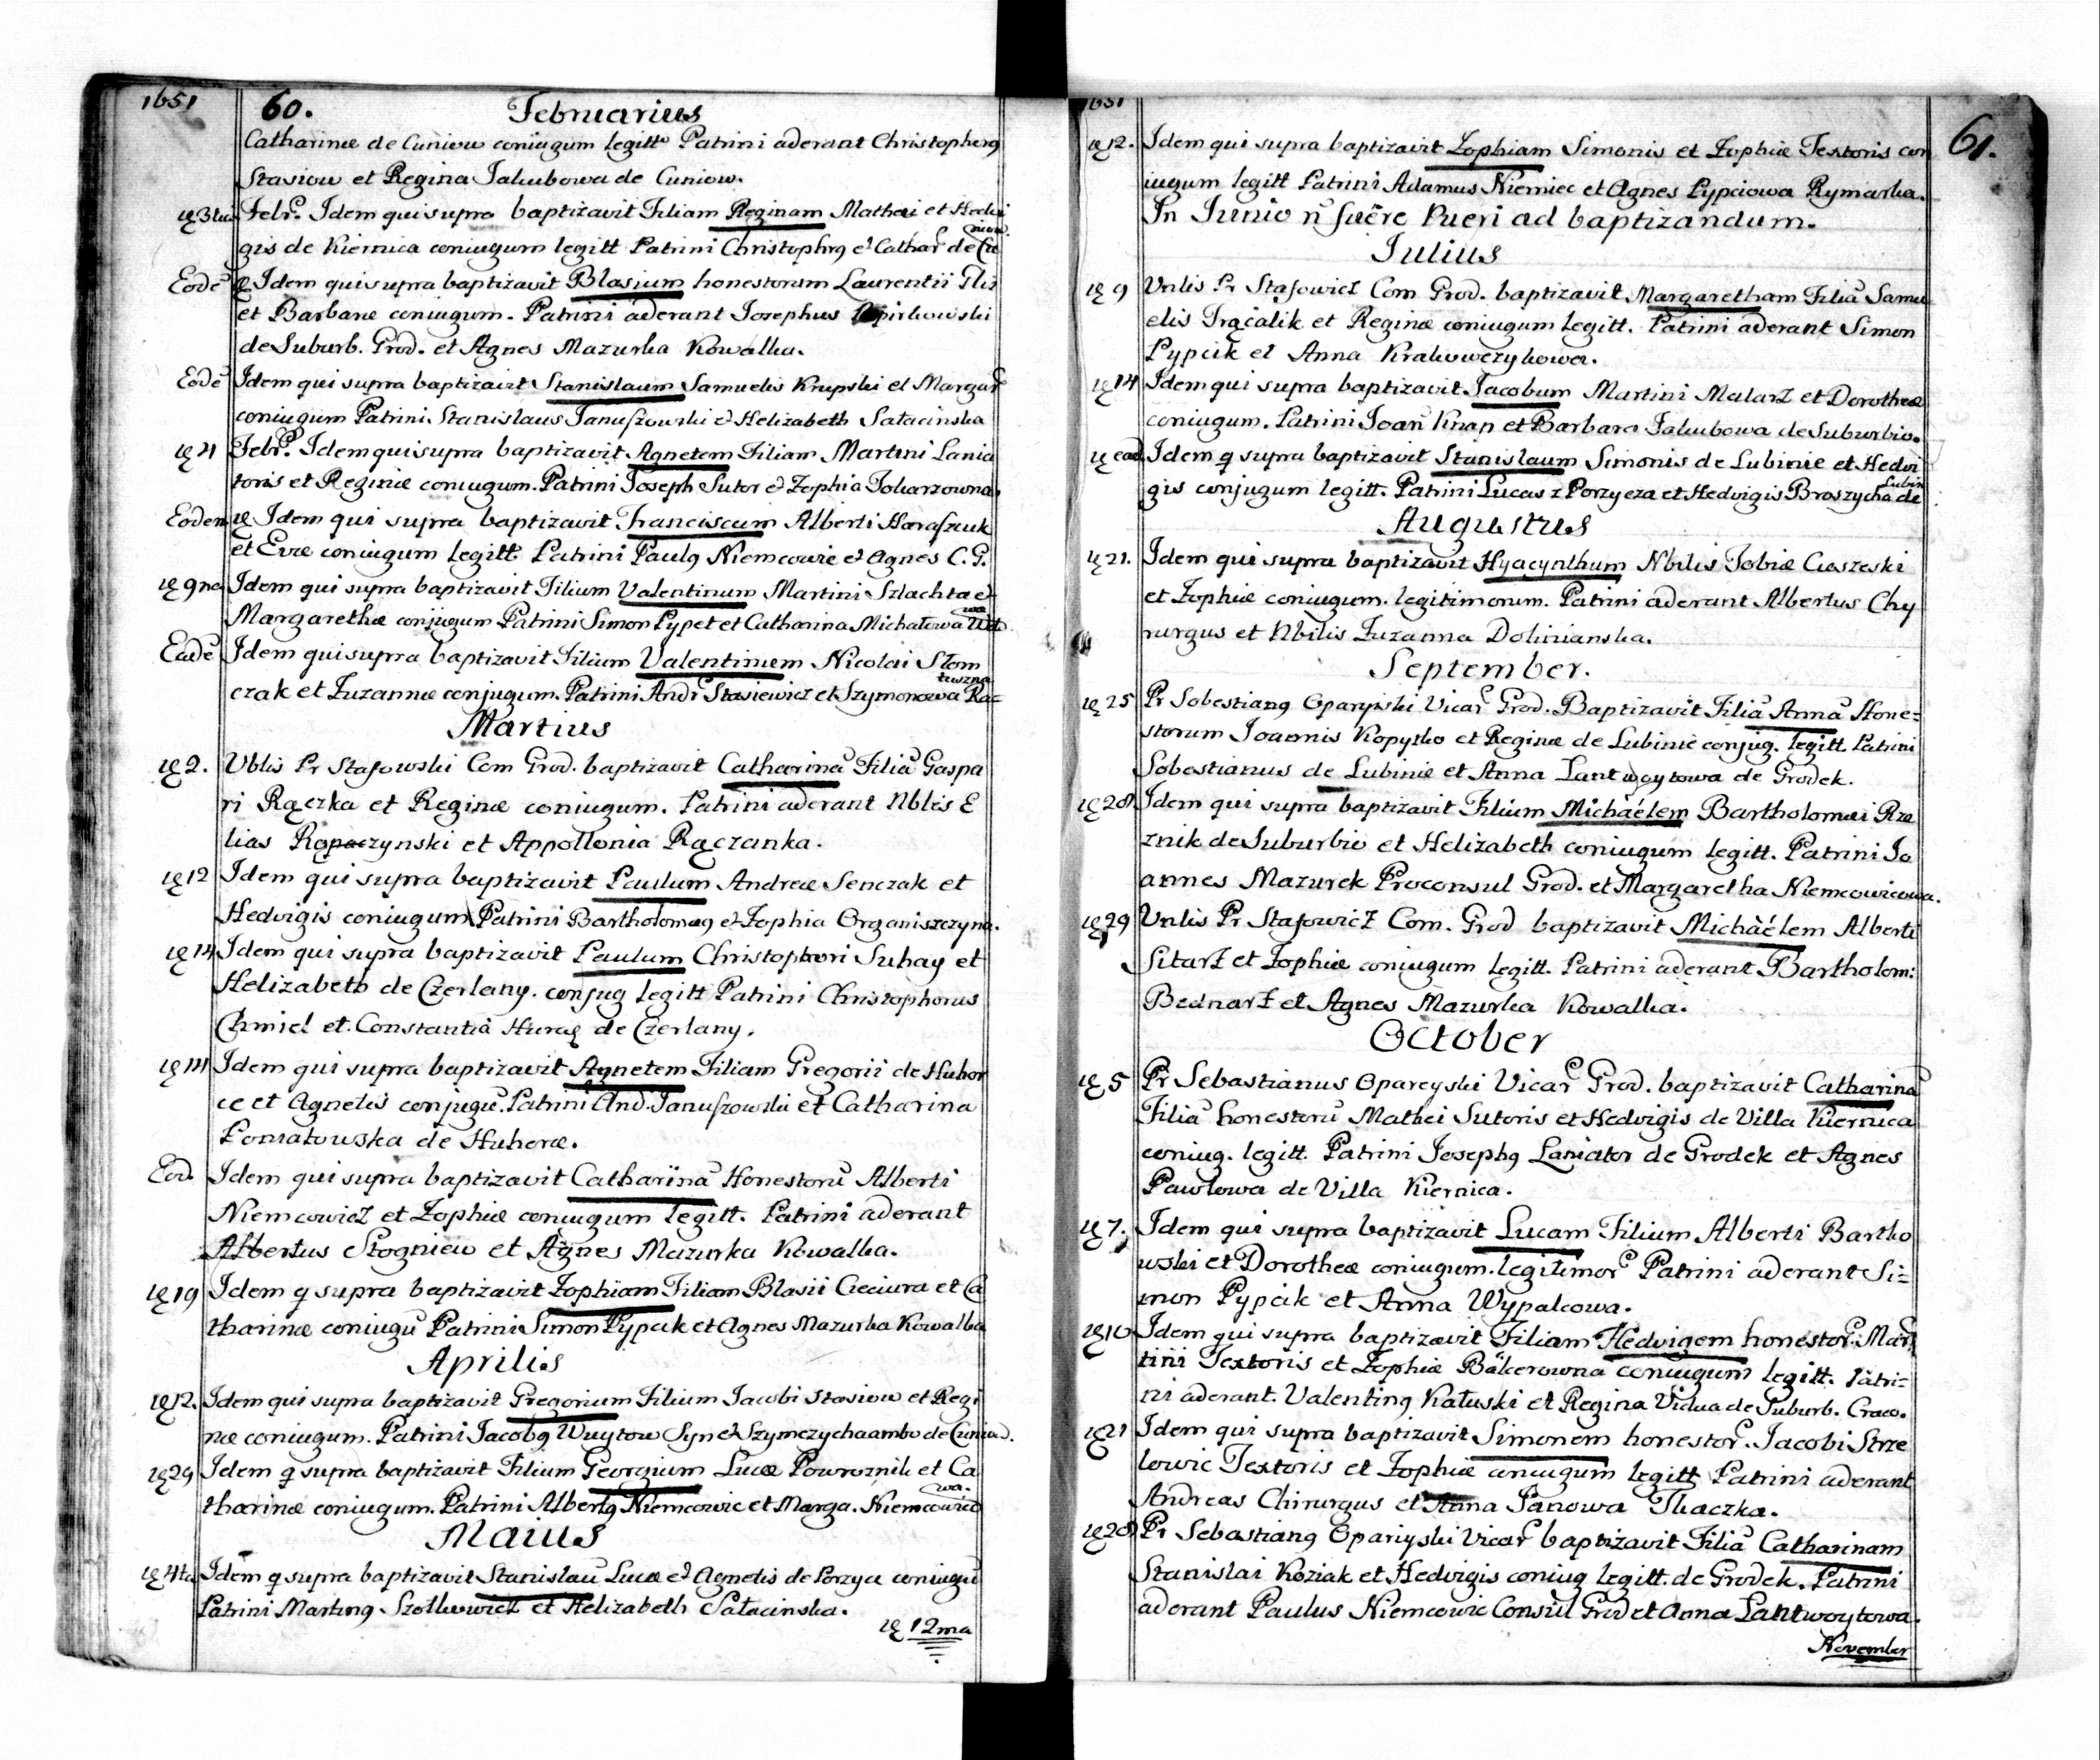 1651 60. Februarius
Catharinæ de Cuniow coniugum legitt Patrini aderant Christopherg
Stasiow et Regina Jakubowa de Cuniow.
Febr. Idem qui supra baptizavit Filiam Reginam Mathæi et Hedvi
gis de Kiernica coniugum legitt Patrini Christophg et Cathar de Cu
niow.
Eodē Idem qui supra baptizavit Blasium honestorum Laurentii
et Barbaræ coniugum. Patrini aderant Josephus
de Suburb. Grod. et Agnes Mazurka Kowalka.
Eodē Idem qui supra baptizavit Stanislaum Samuelis Krupski et Margar
coniugum Patrini Stanislaus Januszowski et Helizabeth Sałacinska
4 Febr. Idem qui supra baptizavit Agnetem Filiam Martini Lania
toris et Reginæ coniugum. Patrini Joseph Sutor et Zophia Tokarzowna.
Eodem Idem qui supra baptizavit Franciscum Alberti Haraszuk
et Evæ coniugum legitt. Patrini Paulg Niemcowic et Agnes C. G.
9na Idem qui supra baptizavit Filium Valentinum Martini Szlachta et
Margarethæ conjugum Patrini Simon Pypet et Catharina Michałowa
Eadē Idem qui supra baptizavit Filium Valentinum Nicolai Słom
czak et Zuzannæ conjugum. Patrini Andr Stasiewicz et Szymonowa Ra=
tuszna
Martius
2. Vblis Pr Stasowski Com Grod. baptizavit Catharinā Filiā Gaspa
ri Rączka et Reginæ coniugum. Patrini aderant Nblis E
lias Rapaczynski et Appollonia Rączanka.
12 Idem qui supra baptizavit Paulum Andreæ Senczak et
Hedvigis coniugum Patrini Bartholomæg et Zophia Organiszczyna.
14 Idem qui supra baptizavit Paulum Christophori Suhay et
Helizabeth de Czerlany. conjug legitt Patrini Christophorus
Chmiel et Constantia de Czerlany.
Idem qui supra baptizavit Agnetem Filiam Gregorii de Huhor
ce et Agnetis conjugū. Patrini And. Januszowski et Catharina
Poniatowska de Huhoræ.
Eod. Idem qui supra baptizavit Catharinā Honestorū Alberti
Niemcowicz et Zophiæ coniugum legitt. Patrini aderant
Albertus Stogniew et Agnes Mazurka Kowalka.
19 Idem q supra baptizavit Zophiam Filiam Blasii Cieciura et Ca
tharinæ coniugū Patrini Simon Pypcik et Agnes Mazurka Kowalka
Aprilis
12. Idem qui supra baptizavit Gregorium Filium Jacobi Stasiow et Regi
næ coniugum. Patrini Jacobg Wuytow Syn et Szymczycha ambo de Cuniow.
29 Idem q supra baptizavit Filium Georgium Lucæ Powroznik et Ca
tharinæ coniugum. Patrini Albertg Niemcowic et Marga. Niemcowic
wa.
Maius
4ta Idem q supra baptizavit Stanislaū Lucæ et Agnetis de Porzyce coniugū
Patrini Marting et Helizabeth Sałacinska.
12ma
1651 61.
12. Idem qui supra baptizavit Zophiam Simonis et Zophiæ Textoris con
iugum legitt Patrini Adamus Niemiec et Agnes Pypciowa Rymarka.
In Junio n fuēre Pueri ad baptizandum.
Julius
9 Vnlis Pr Stasowicz Com Grod. baptizavit Margaretham Filiā Samu
elis Trącalik et Reginæ coniugum legitt. Patrini aderant Simon
Pypcik et Anna Krakowczykowa.
14 Idem qui supra baptizavit Jacobum Martini Malarz et Dorotheæ
coniugum. Patrini Joan Knap et Barbara Jakubowa de Suburbio.
ead. Idem q supra baptizavit Stanislaum Simonis de Lubinie et Hedvi
gis conjugum legitt. Patrini Lucas z Porzycza et Hedvigis Broszycha de
Lubin
Augustus
21. Idem qui supra baptizavit Hyacynthum Nbilis Tobiæ Ciaszeski
et Zophiæ coniugum. legitimorum. Patrini aderant Albertus Chy
rurgus et Nbilis Zuzanna Dolinianska.
September.
25 Pr Sobestiang Oparyski Vicar Grod. Baptizavit Filiā Annā Hone=
storum Joannis Kopytko et Reginæ de Lubinie conjug. legitt. Patrini
Sobestianus de Lubinie et Anna Lantwoytowa de Grodek.
28 Idem qui supra baptizavit Filium Michaélem Bartholomæi Rze
znik de Suburbio et Helizabeth coniugum legitt. Patrini Jo
annes Mazurek Proconsul Grod. et Margaretha Niemcowicowa.
29 Vnlis Pr Stasowicz Com. Grod baptizavit Michàélem Alberti
Sitarz et Zophiæ coniugum legitt. Patrini aderant Bartholom:
Bednarz et Agnes Mazurka Kowalka.
October
5 Pr Sebastianus Oparcyski Vicar Grod. baptizavit Catharinā
Filiā honestorū Mathei Sutoris et Hedvigis de Villa Kiernica
coniug. legitt. Patrini Josephg Laniator de Grodek et Agnes
Pawlowa de Villa Kiernica.
7. Idem qui supra baptizavit Lucam Filium Alberti Bartko
wski et Dorotheæ coniugum. legitimor Patrini aderant Si=
mon Pypcik et Anna Wypalcowa.
10 Idem qui supra baptizavit Filiam Hedvigem honestor. Mar
tini Textoris et Zophiæ Balcerowna coniugum legitt. Patri=
ni aderant. Valenting Kałuski et Regina Vidua de Suburb. Craco.
21 Idem qui supra baptizavit Simonem honestor. Jacobi Strze
lowic Textoris et Zophiæ coniugum legitt Patrini aderant
Andreas Chirurgus et Anna Panowa Tkaczka.
28 Pr Sebastiang Opariyski Vicar baptizavit Filiā Catharinam
Stanislai Koziak et Hedvigis coniug legitt. de Grodek. Patrini
aderant Paulus Niemcowic Consul Grod et Anna Lantwoytowa.
November